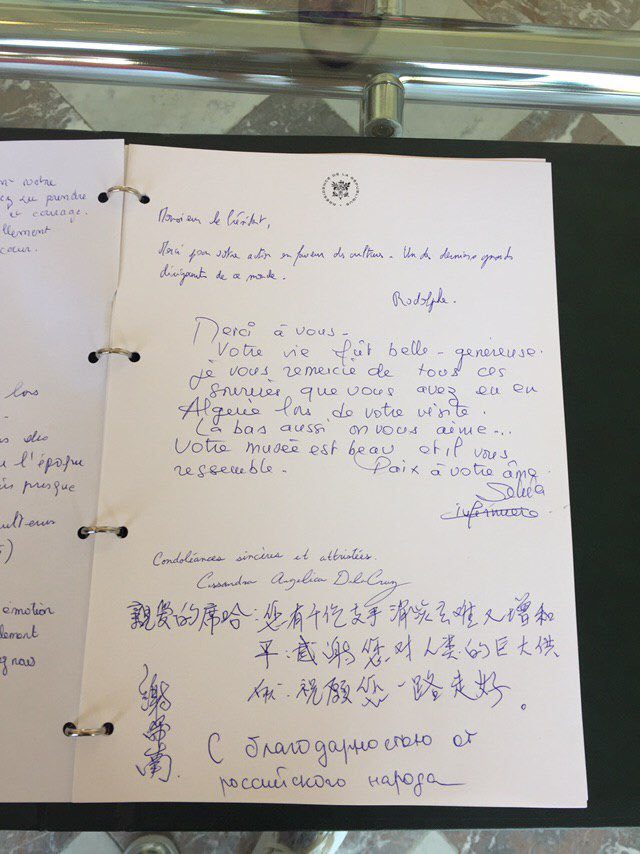 votre
ez su prendre
et courage.
llement
cœur.
lors
l'époque
is presque
emotion
lement
PRESIDENCE DE LA REPUBLIQUE
Monsieur le Président,
Merci pour votre action en faveur des cultures - Un des derniers grands
dirigeants de ce monde.
Rodolphe.
Merci à vous -
Votre vie fût belle - généreuse.
je vous remercie de tous ces
que vous avez eu en
Algerie lors de votre visite.
La bas aussi on vous aime...
Votre musée est beau et il vous
ressemble - Paix à votre âme
Condoléances sincères et attristées.
Cassandra Angelica DelaCruz
親爱的席哈:您有千 支手消災去难又增和
平:感谢您对人类的巨大供
:祝願您一路走好。
С благодарностью от
российского народа